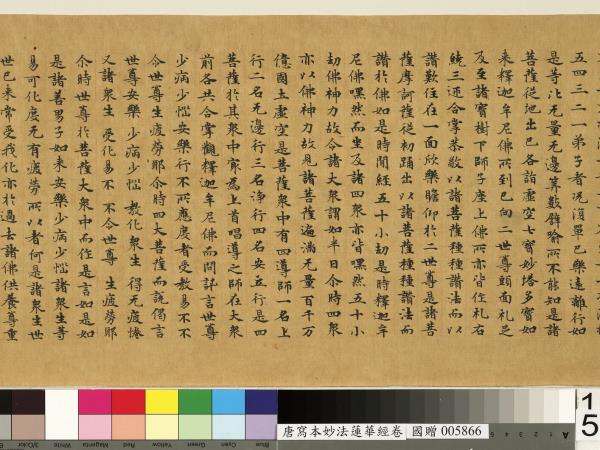 五四三二一弟子者況復單已樂遠離行如
是等比无量无邊算數譬喻所不能知是諸
菩薩從地出已各詣虛空七寶妙塔多寶如
來釋迦牟尼佛所到已向二世尊頭面礼足
及至諸寶樹下師子座上佛所亦皆作礼右
繞三迊合掌恭敬以諸菩薩種種讚法而以
讚歎住在一面欣樂瞻仰於二世尊是諸菩
薩摩訶薩從初踊出以諸菩薩種種讚法而
讚於佛如是時間經五十小劫是時釋迦牟
尼佛嘿然而坐及諸四衆亦皆嘿然五十小
劫佛神力故令諸大衆謂如半日尒時四衆
亦以佛神力故見諸菩薩遍滿无量百千万
億國土虛空是菩薩衆中有四導師一名上
行二名无邊行三名淨行四名安立行是四
菩薩於其衆中㝡為上首唱導之師在大衆
前各共合掌觀釋迦牟尼佛而問訊言世尊
少病少惱安樂行不所應度者受教易不不
令世尊生疲勞耶尒時四大菩薩而說偈言
世尊安樂 少病少惱 教化衆生 得无疲惓
又諸衆生 受化易不 不令世尊 生疲勞耶
尒時世尊於菩薩大衆中而作是言如是如
是諸善男子如來安樂少病少惱諸衆生等
易可化度无有疲勞所以者何是諸衆生世
世已來常受我化亦於過去諸佛供養尊重
3/Color White Magenta Red Yellow Green Cyan Blue
唐寫本妙法蓮華經卷 國贈 005866
15